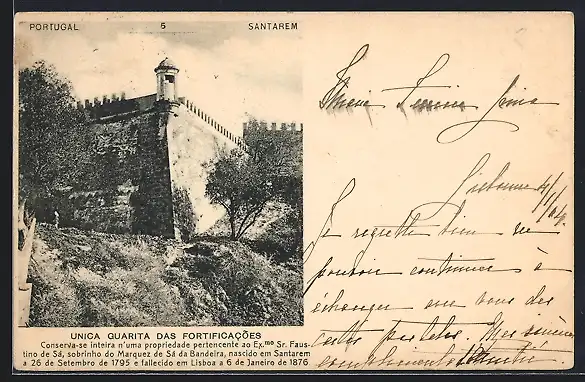 PORTUGAL 5 SANTAREM
UNICA GUARITA DAS FORTIFICAÇÕES
Conserva-se inteira n'uma propriedade pertencente ao Ex.mo Sr. Faus-
tino de Sá, sobrinho do Marquez de Sá da Bandeira, nascido em Santarem
a 26 de Setembro de 1795 e fallecido em Lisboa a 6 de Janeiro de 1876
Lisbonne
Je regrette bien ne
pouvoir continuer à
échanger avec vous des
cartes postales
compliments